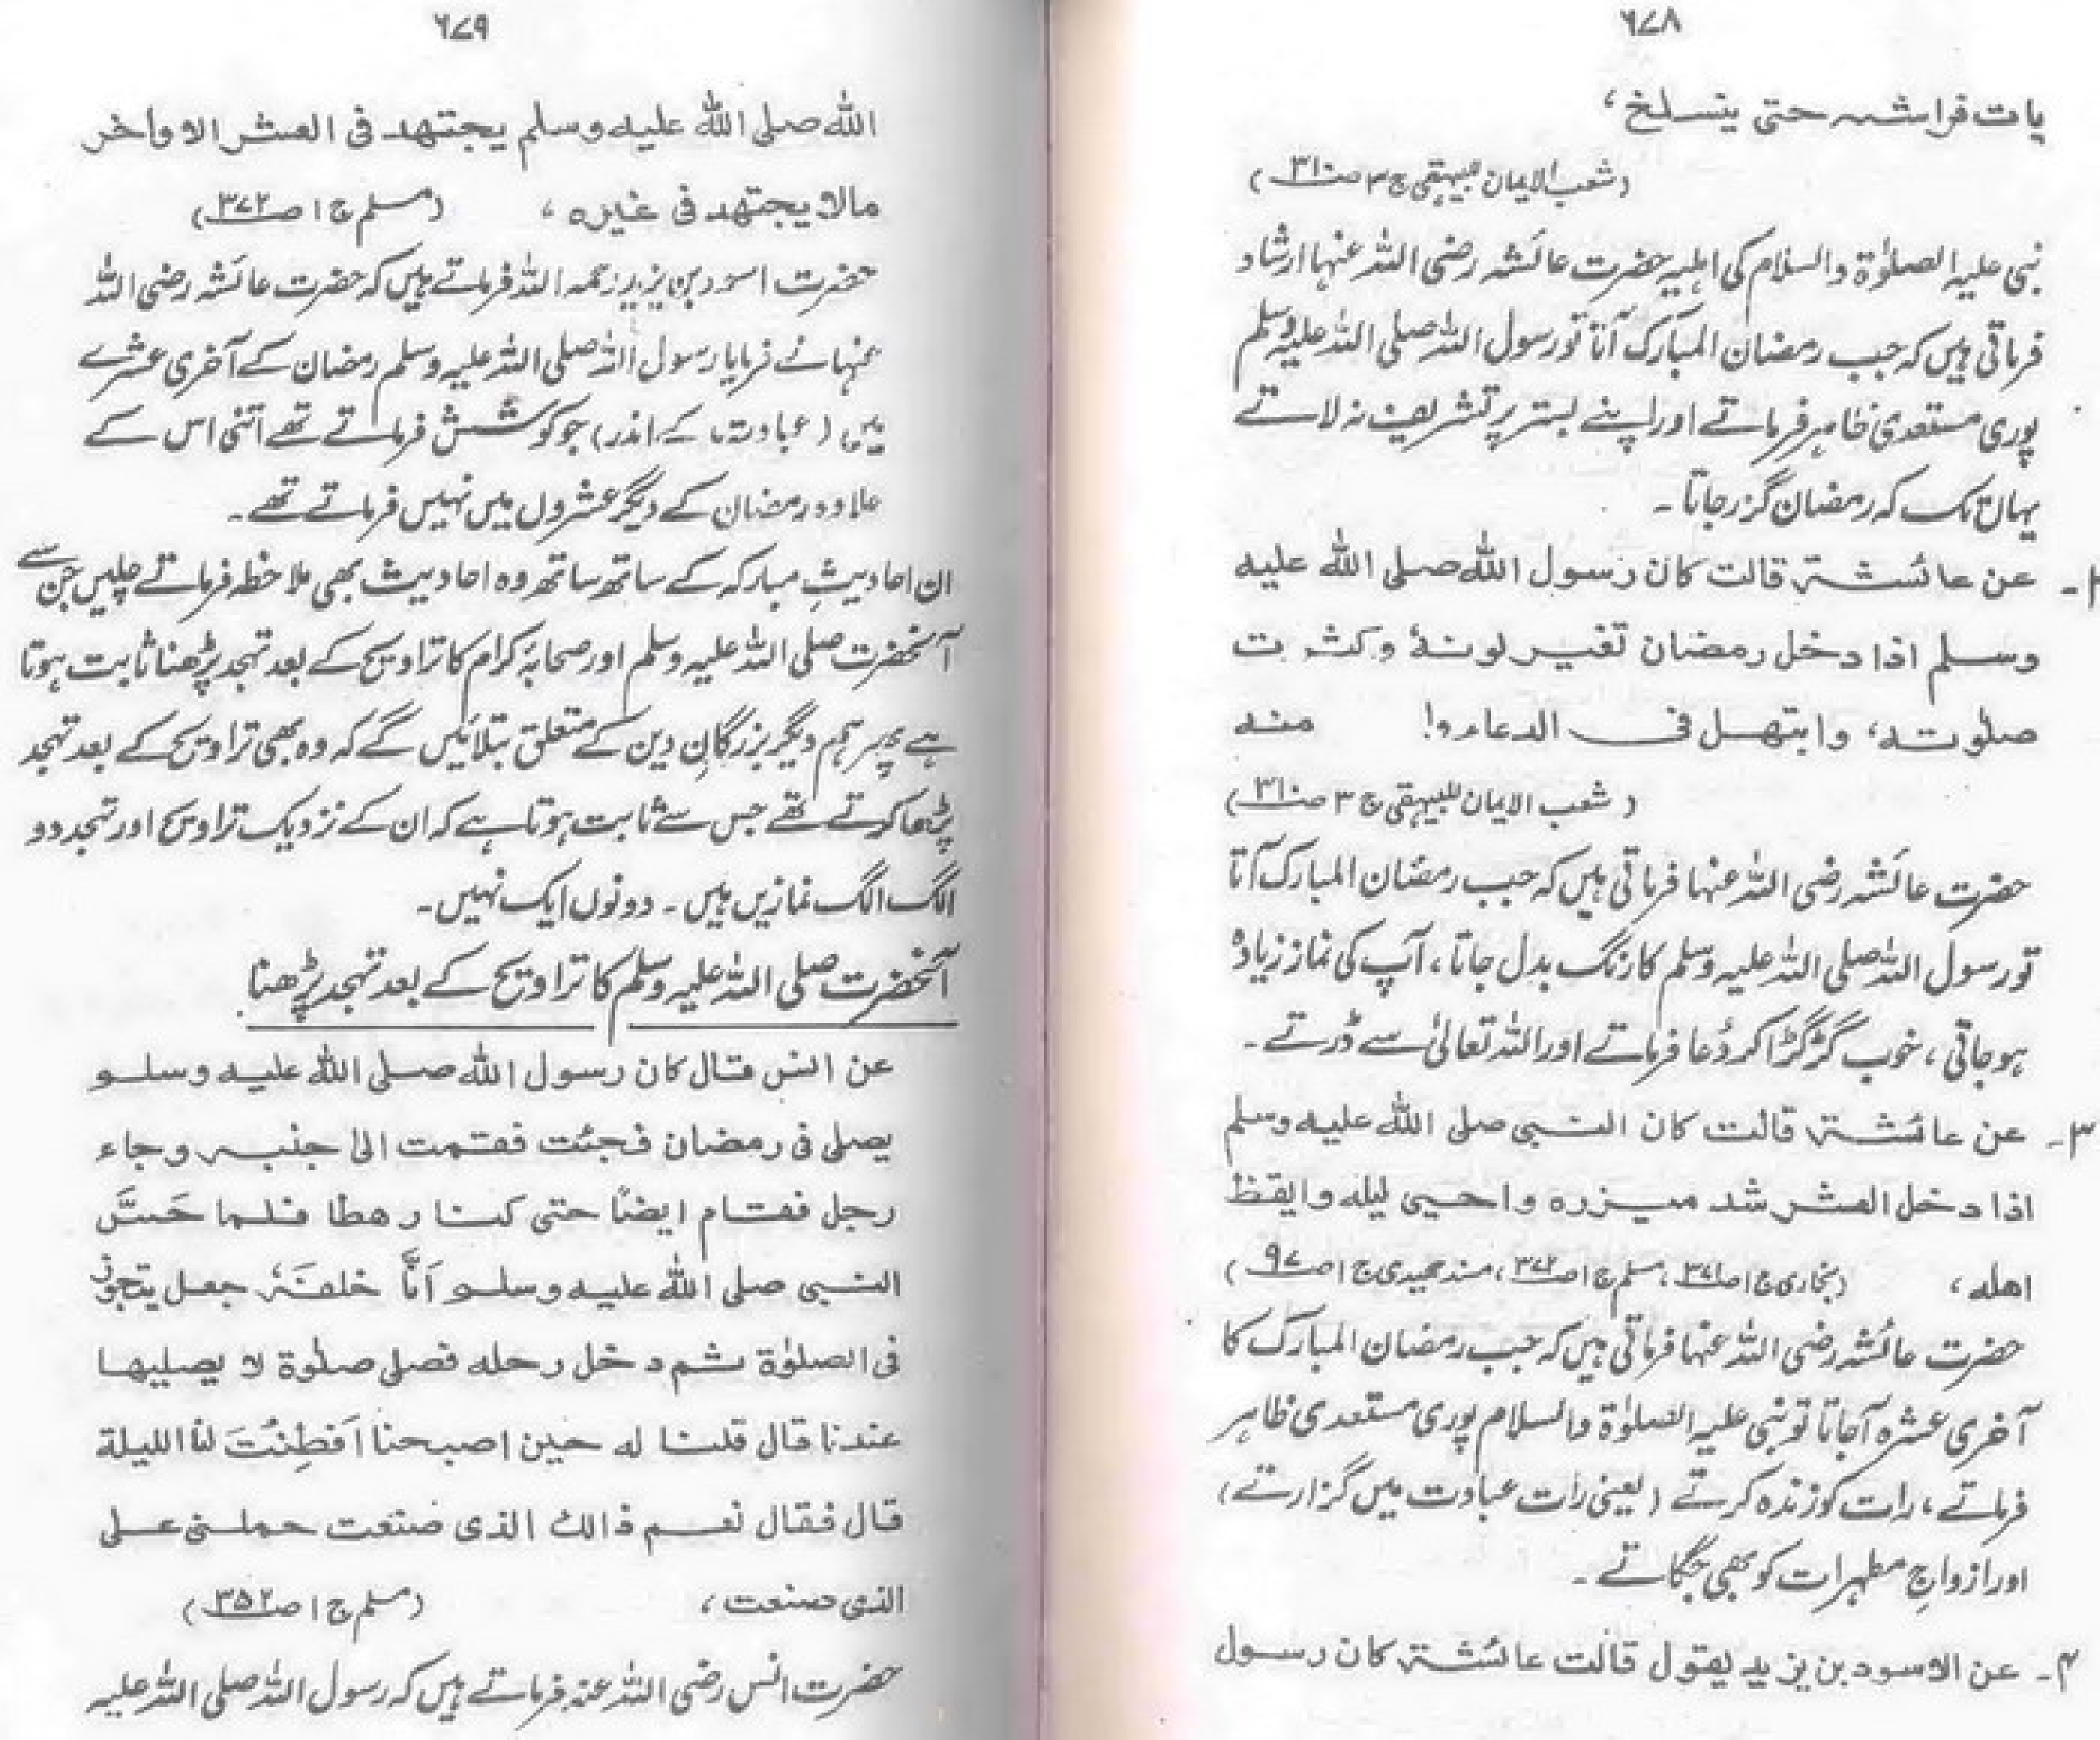 ۶۷۸
یات فراشہ حتی ینسلخ،
(شعب الایمان للبیہقی ج ۳ صـ۳۱۰)
نبی علیہ الصلوٰۃ والسلام کی اہلیہ حضرت عائشہ رضی اللہ عنہا ارشاد
فرماتی ہیں کہ جب رمضان المبارک آتا تو رسول اللہ صلی اللہ علیہ وسلم
پوری مستعدی ظاہر فرماتے اور اپنے بستر پر تشریف نہ لاتے
یہاں تک کہ رمضان گزر جاتا۔
۲۔ عن عائشۃ قالت کان رسول اللہ صلی اللہ علیہ
وسلم اذا دخل رمضان تغیر لونہٗ وکثرت
صلوٰتہ، وابتھل فی الدعاء و! منہ
(شعب الایمان للبیہقی ج ۳ صـ۳۱۰)
حضرت عائشہ رضی اللہ عنہا فرماتی ہیں کہ جب رمضان المبارک آتا
تو رسول اللہ صلی اللہ علیہ وسلم کا رنگ بدل جاتا، آپ کی نماز زیادہ
ہو جاتی، خوب گڑگڑا کر دُعا فرماتے اور اللہ تعالیٰ سے ڈرتے۔
۳۔ عن عائشۃ قالت کان النبی صلی اللہ علیہ وسلم
اذا دخل العشر شد میزرہ واحیی لیلہ وایقظ
اھلہ، (بخاری ج۱ صـ۲۷۱، مسلم ج۱ صـ۳۷۲، مسند حمیدی ج۱ صـ۹۷)
حضرت عائشہ رضی اللہ عنہا فرماتی ہیں کہ جب رمضان المبارک کا
آخری عشرہ آجاتا تو نبی علیہ الصلوٰۃ والسلام پوری مستعدی ظاہر
فرماتے، رات کو زندہ کرتے (یعنی رات عبادت میں گزارتے)
اور ازواجِ مطہرات کو بھی جگاتے۔
۴۔ عن الاسود بن یزید یقول قالت عائشۃ کان رسول
۶۷۹
اللہ صلی اللہ علیہ وسلم یجتھد فی العشر الاواخر
مالا یجتھد فی غیرہ، (مسلم ج۱ صـ۳۷۲)
حضرت اسود بن یزید رحمہ اللہ فرماتے ہیں کہ حضرت عائشہ رضی اللہ
عنہا نے فرمایا رسول اللہ صلی اللہ علیہ وسلم رمضان کے آخری عشرے
میں (عبادت کے اندر) جو کوشش فرماتے تھے اتنی اس کے
علاوہ رمضان کے دیگر عشروں میں نہیں فرماتے تھے۔
ان احادیثِ مبارکہ کے ساتھ ساتھ وہ احادیث بھی ملاحظہ فرماتے چلیں جن سے
آنحضرت صلی اللہ علیہ وسلم اور صحابۂ کرام کا تراویح کے بعد تہجد پڑھنا ثابت ہوتا
ہے پھر ہم دیگر بزرگانِ دین کے متعلق بتلائیں گے کہ وہ بھی تراویح کے بعد تہجد
پڑھا کرتے تھے جس سے ثابت ہوتا ہے کہ ان کے نزدیک تراویح اور تہجد دو
الگ الگ نمازیں ہیں۔ دونوں ایک نہیں۔
آنحضرت صلی اللہ علیہ وسلم کا تراویح کے بعد تہجد پڑھنا
عن انس قال کان رسول اللہ صلی اللہ علیہ وسلم
یصلی فی رمضان فجئت فقمت الیٰ جنبہ وجاء
رجل فقام ایضًا حتی کنا رھطا فلما حَسَّ
النبی صلی اللہ علیہ وسلم اَنَّا خلفَہٗ جعل یتجوز
فی الصلوٰۃ ثم دخل رحلہ فصلی صلوٰۃ لا یصلیھا
عندنا قال قلنا لہ حین اصبحنا اَفَطِنْتَ لنا اللیلۃ
قال فقال نعم ذالک الذی صنعت حملنی علی
الذی صنعت، (مسلم ج۱ صـ۳۵۲)
حضرت انس رضی اللہ عنہ فرماتے ہیں کہ رسول اللہ صلی اللہ علیہ